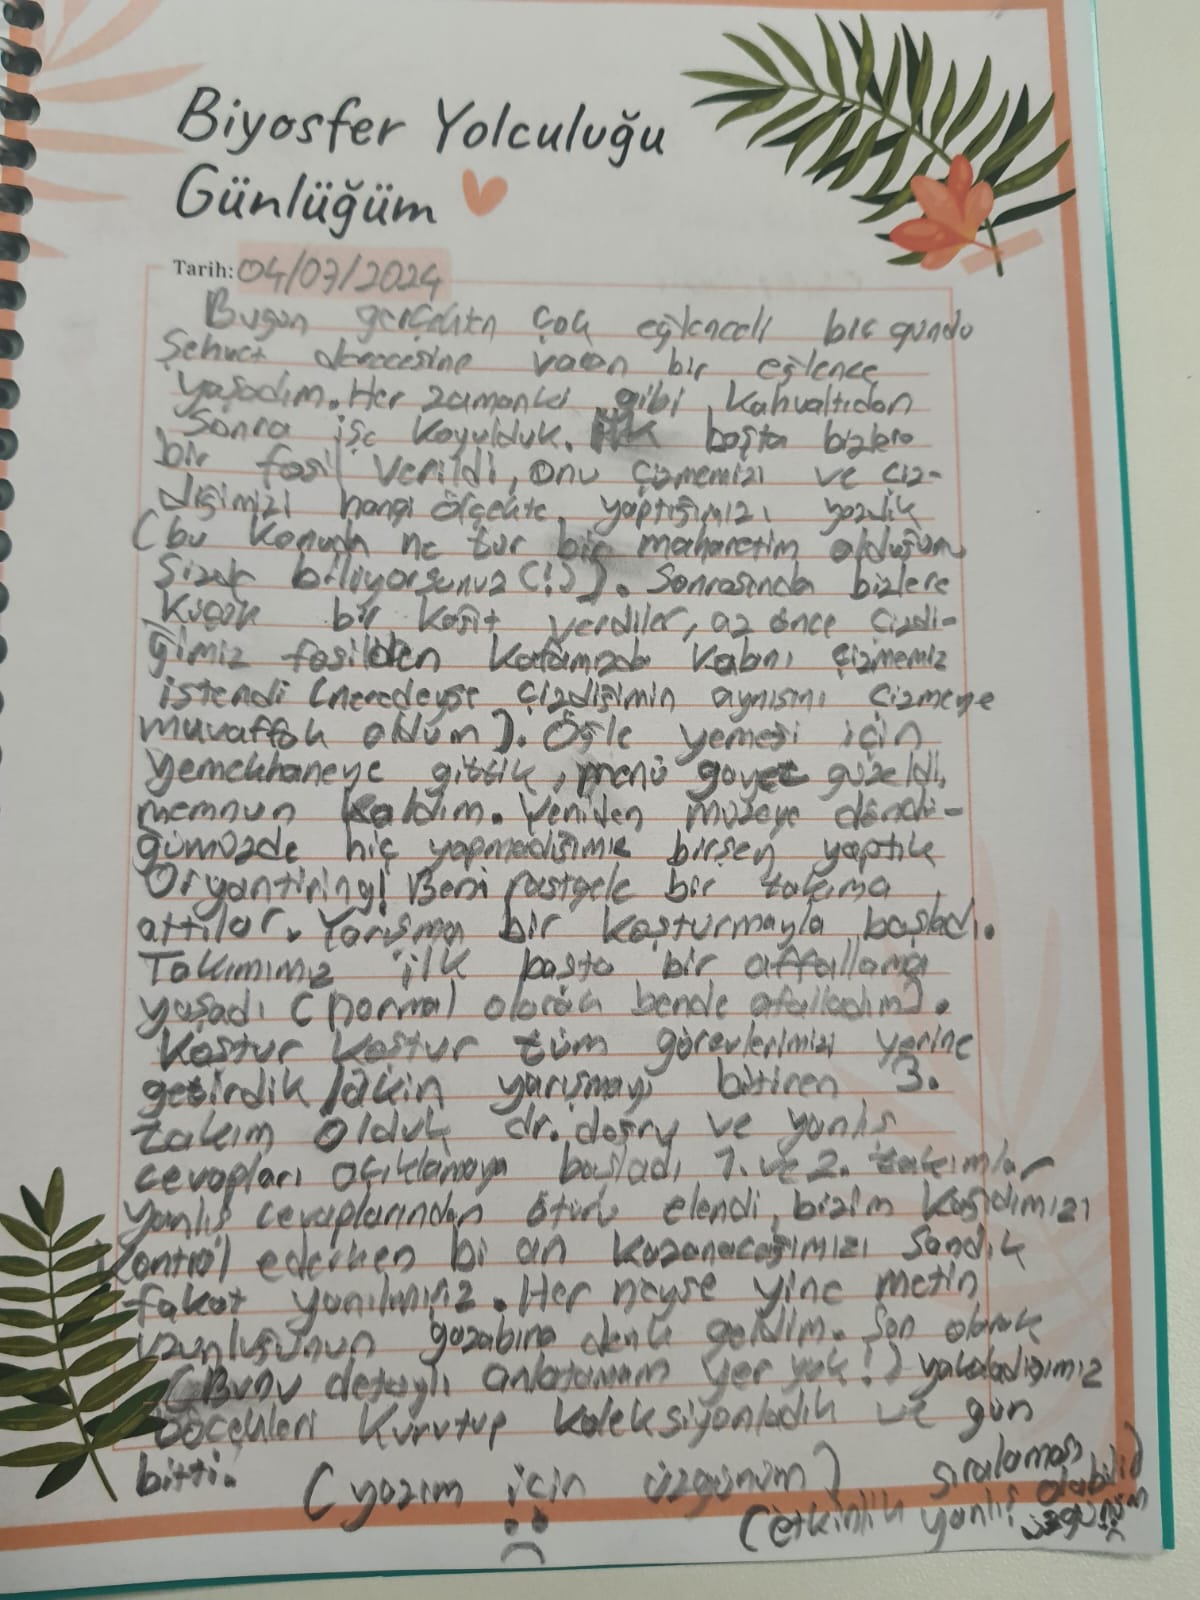 Biyosfer Yolculuğu
Günlüğüm
Tarih: 04/07/2024
Bugün gerçekten çok eğlenceli bir gündü
Şehvet derecesine varan bir eğlence
yaşadım. Her zamanki gibi kahvaltıdan
Sonra işe koyulduk. İlk başta bizlere
bir fosil verildi, onu çizmemizi ve çiz-
diğimizi hangi ölçekte yaptığımızı yazdık
(bu konuda ne tür bir maharetim olduğunu
Sizde biliyorsunuz(!)). Sonrasında bizlere
küçük bir kağıt verdiler, az önce çizdi-
ğimiz fosilden kafamızda kabnı çizmemiz
istendi (neredeyse çizdiğimin aynısını çizmeye
muvaffak oldum). Öğle yemeği için
yemekhaneye gittik, menü gayet güzeldi,
memnun kaldım. Yeniden müzeye döndü-
ğümüzde hiç yapmadığımız birşey yaptık
Oryantiring! Beni rastgele bir takıma
attılar. Yarışma bir koşturmayla başladı.
Takımımız ilk başta bir affallama
yaşadı (normal olarak bende afalladım).
Koştur koştur tüm görevlerimizi yerine
getirdik lakin yarışmayı bitiren 3.
takım olduk dr. doğru ve yanlış
cevapları açıklamaya başladı 1. ve 2. takımlar
yanlış cevaplarından ötürü elendi, bizim kağıdımızı
kontrol ederken bi an kazanacağımızı Sandık
fakat yanılmışız. Her neyse yine metin
uzunluğunun gazabına denk geldim. Son olarak
(Bunu detaylı anlatamam yer yok!) yakaladığımız
böcekleri kurutup koleksiyonladık ve gün
bitti. (yazım için üzgünüm)
(etkinlik sıralaması
yanlış olabilir
üzgünüm